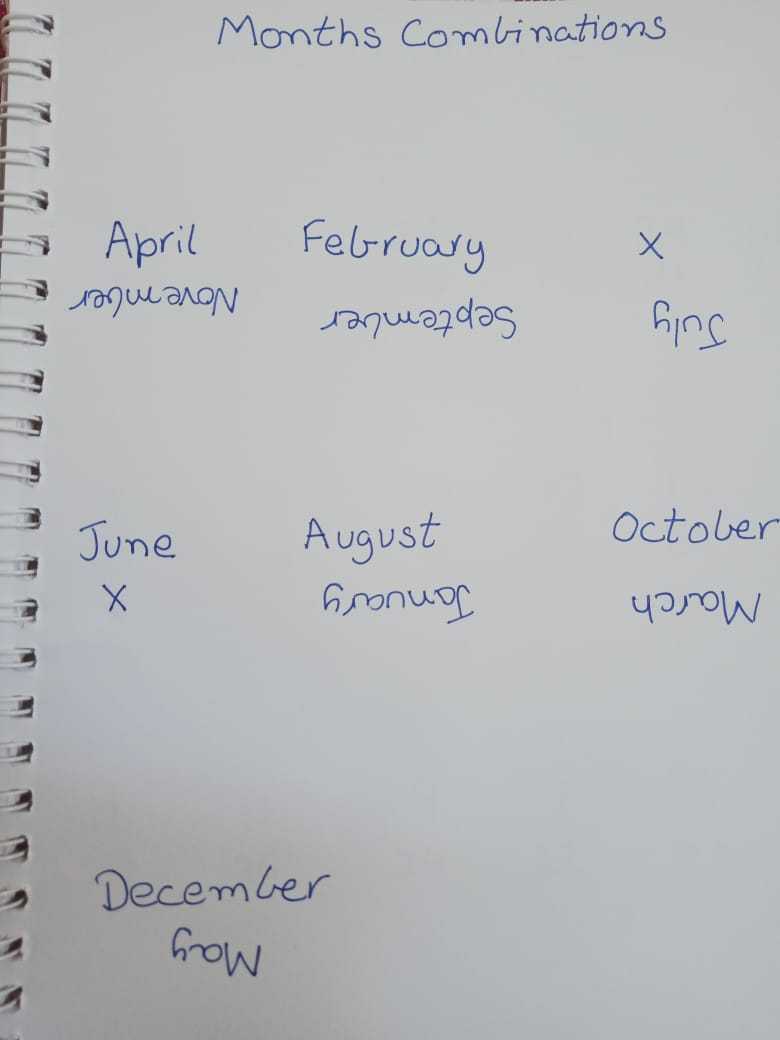 Months Combinations
April February X
November September July
June August October
X January March
December
May